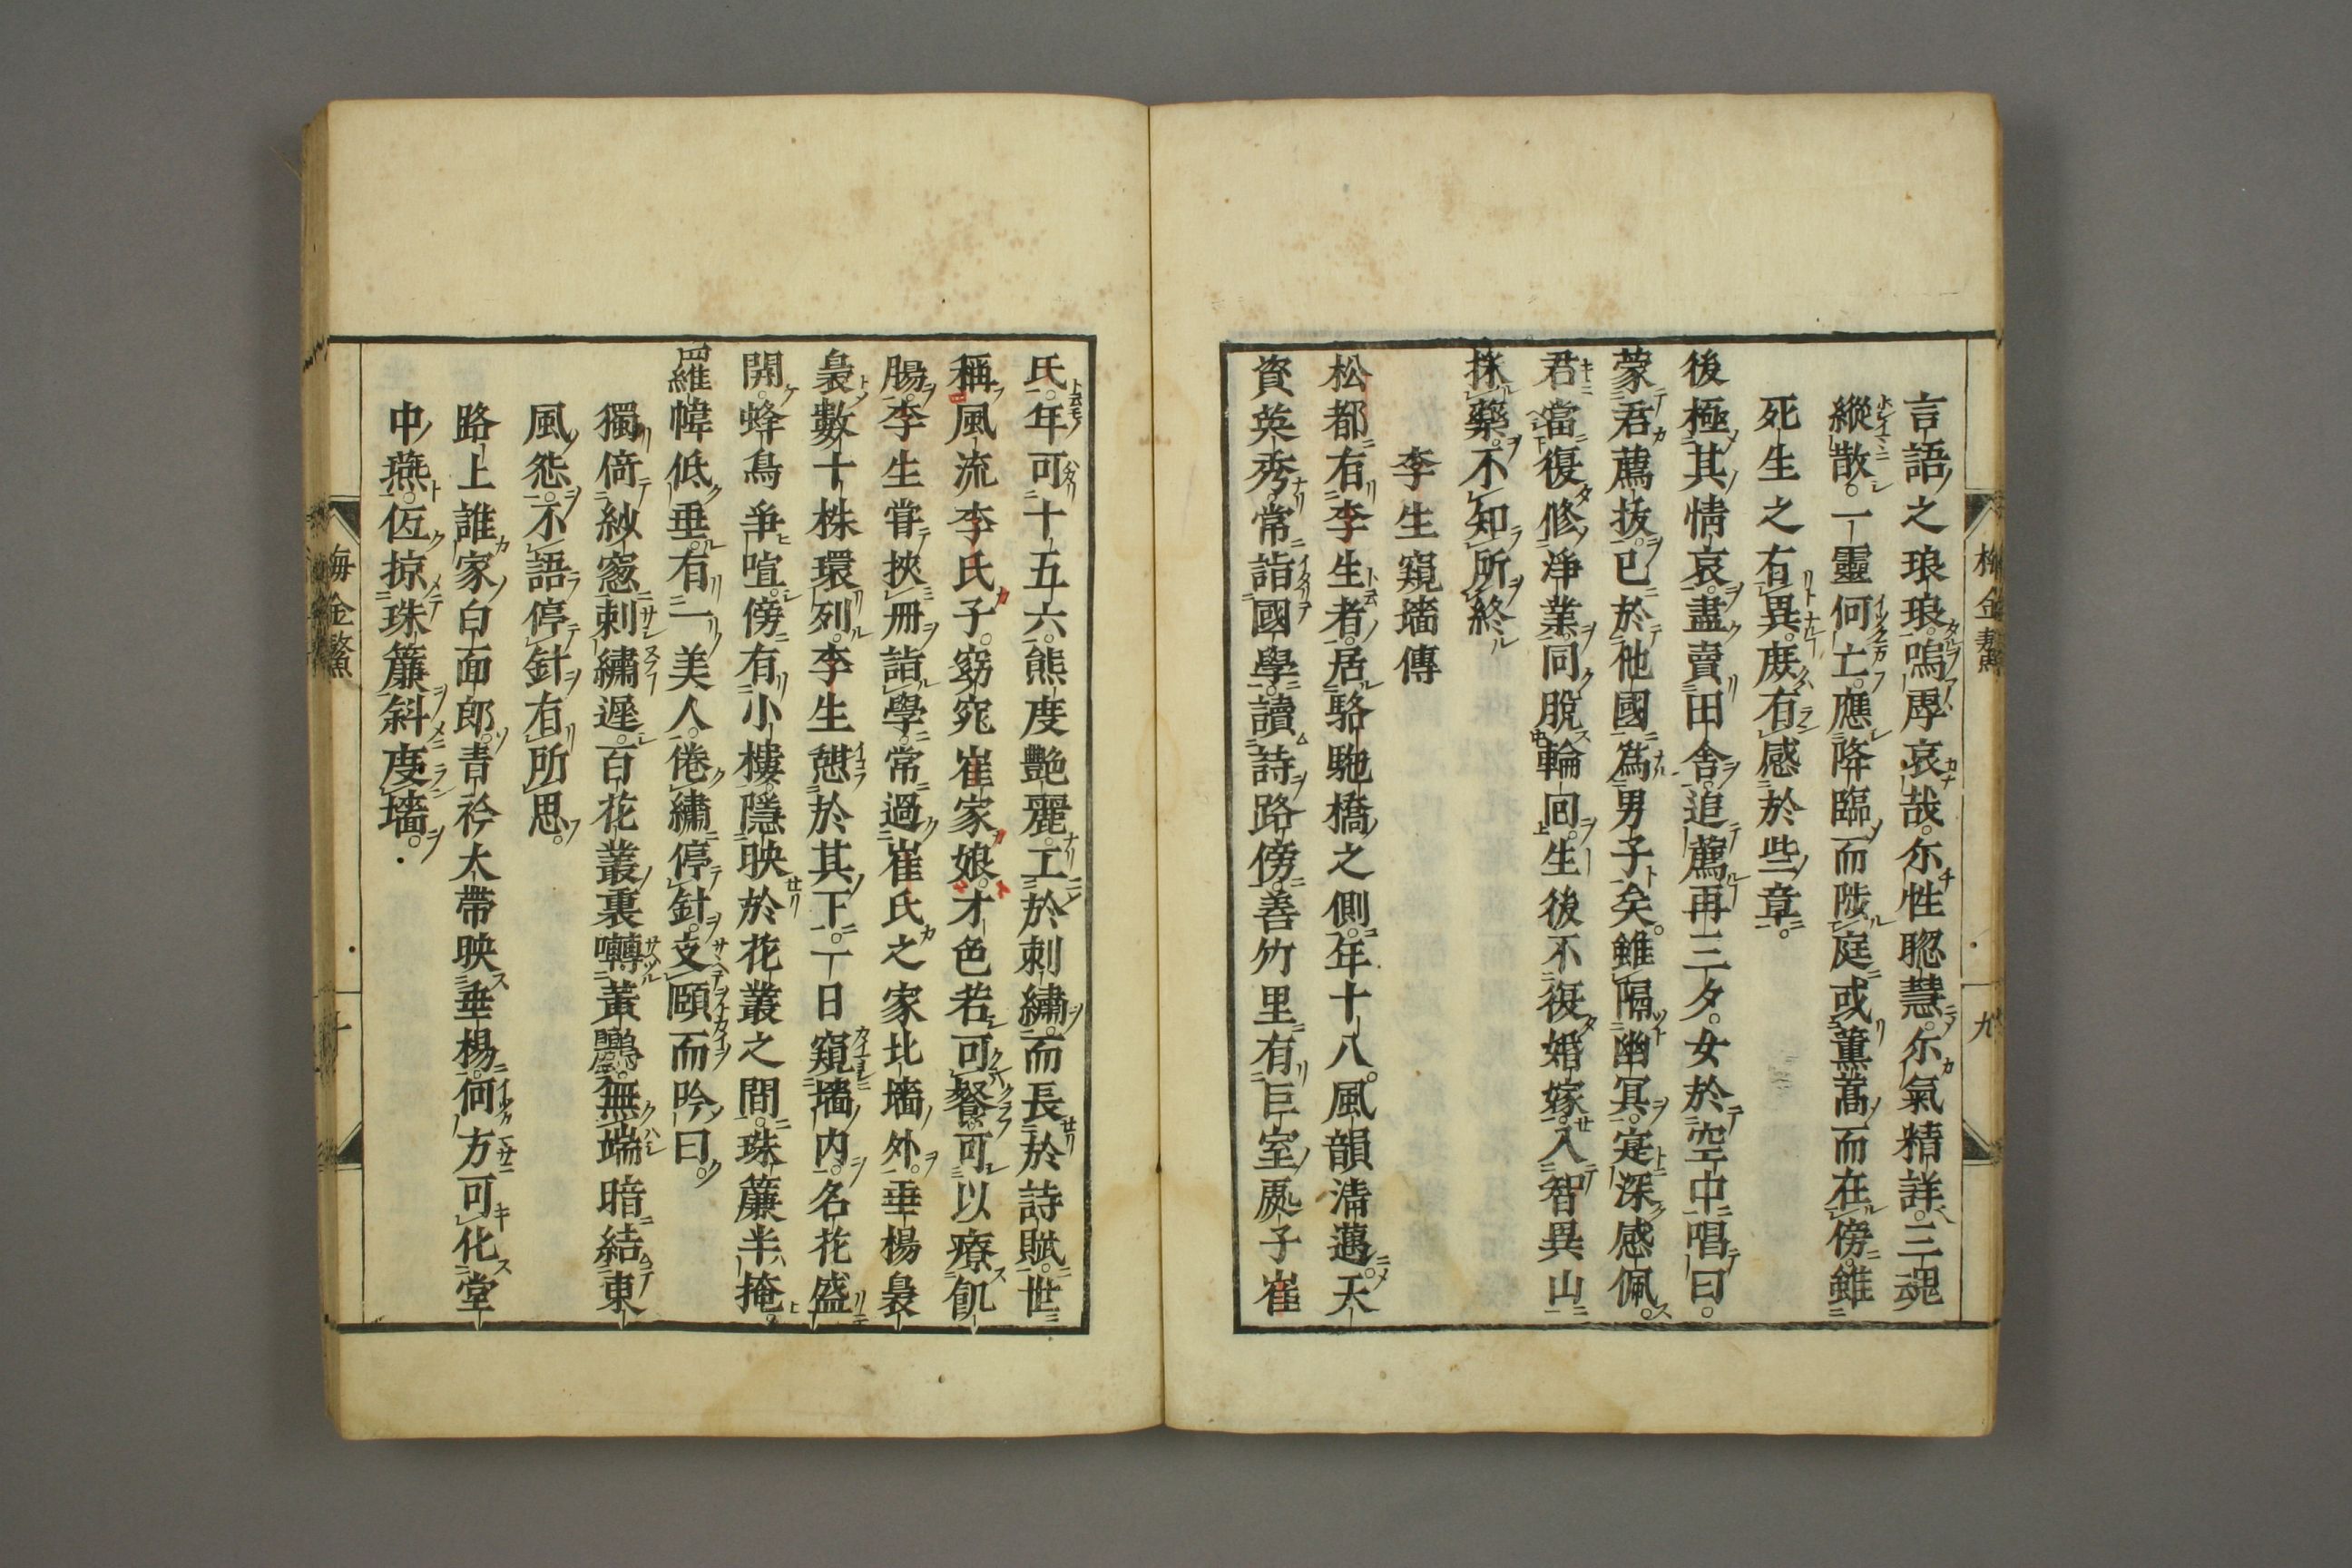 言語之琅琅嗚虖哀哉尓性聡慧尓氣精詳三魂
縦散一靈何亡應降臨而陟庭或薫蒿而在傍雖
死生之有異庶有感於些章
後極其情哀盡賣田舎追薦再三夕女於空中唱曰
蒙君薦抜已於他國為男子矣雖隔幽冥寔深感佩
君當復修淨業同脫輪回生後不復婚嫁入智異山
採藥不知所終
李生窺墻傳
松都有李生者居駱駞橋之側年十八風韻清邁天
資英秀常詣國學讀詩路傍善竹里有巨室處子崔
氏年可十五六態度艶麗工於刺繡而長於詩賦世
稱風流李氏子窈窕崔家娘才色若可餐可以療飢
腸李生嘗挾冊詣學常過崔氏之家北墻外垂楊裊
裊數十株環列李生憩於其下一日窺墻内名花盛
開蜂鳥爭喧傍有小樓隱映於花叢之間珠簾半掩
羅幃低垂有一美人倦繡停針支頤而吟曰
獨倚紗窓刺繡遲百花叢裏囀黃鸝無端暗結東
風怨不語停針有所思
路上誰家白面郎青衿大帶映垂楊何方可化堂
中燕低掠珠簾斜度墻
梅金鰲
九